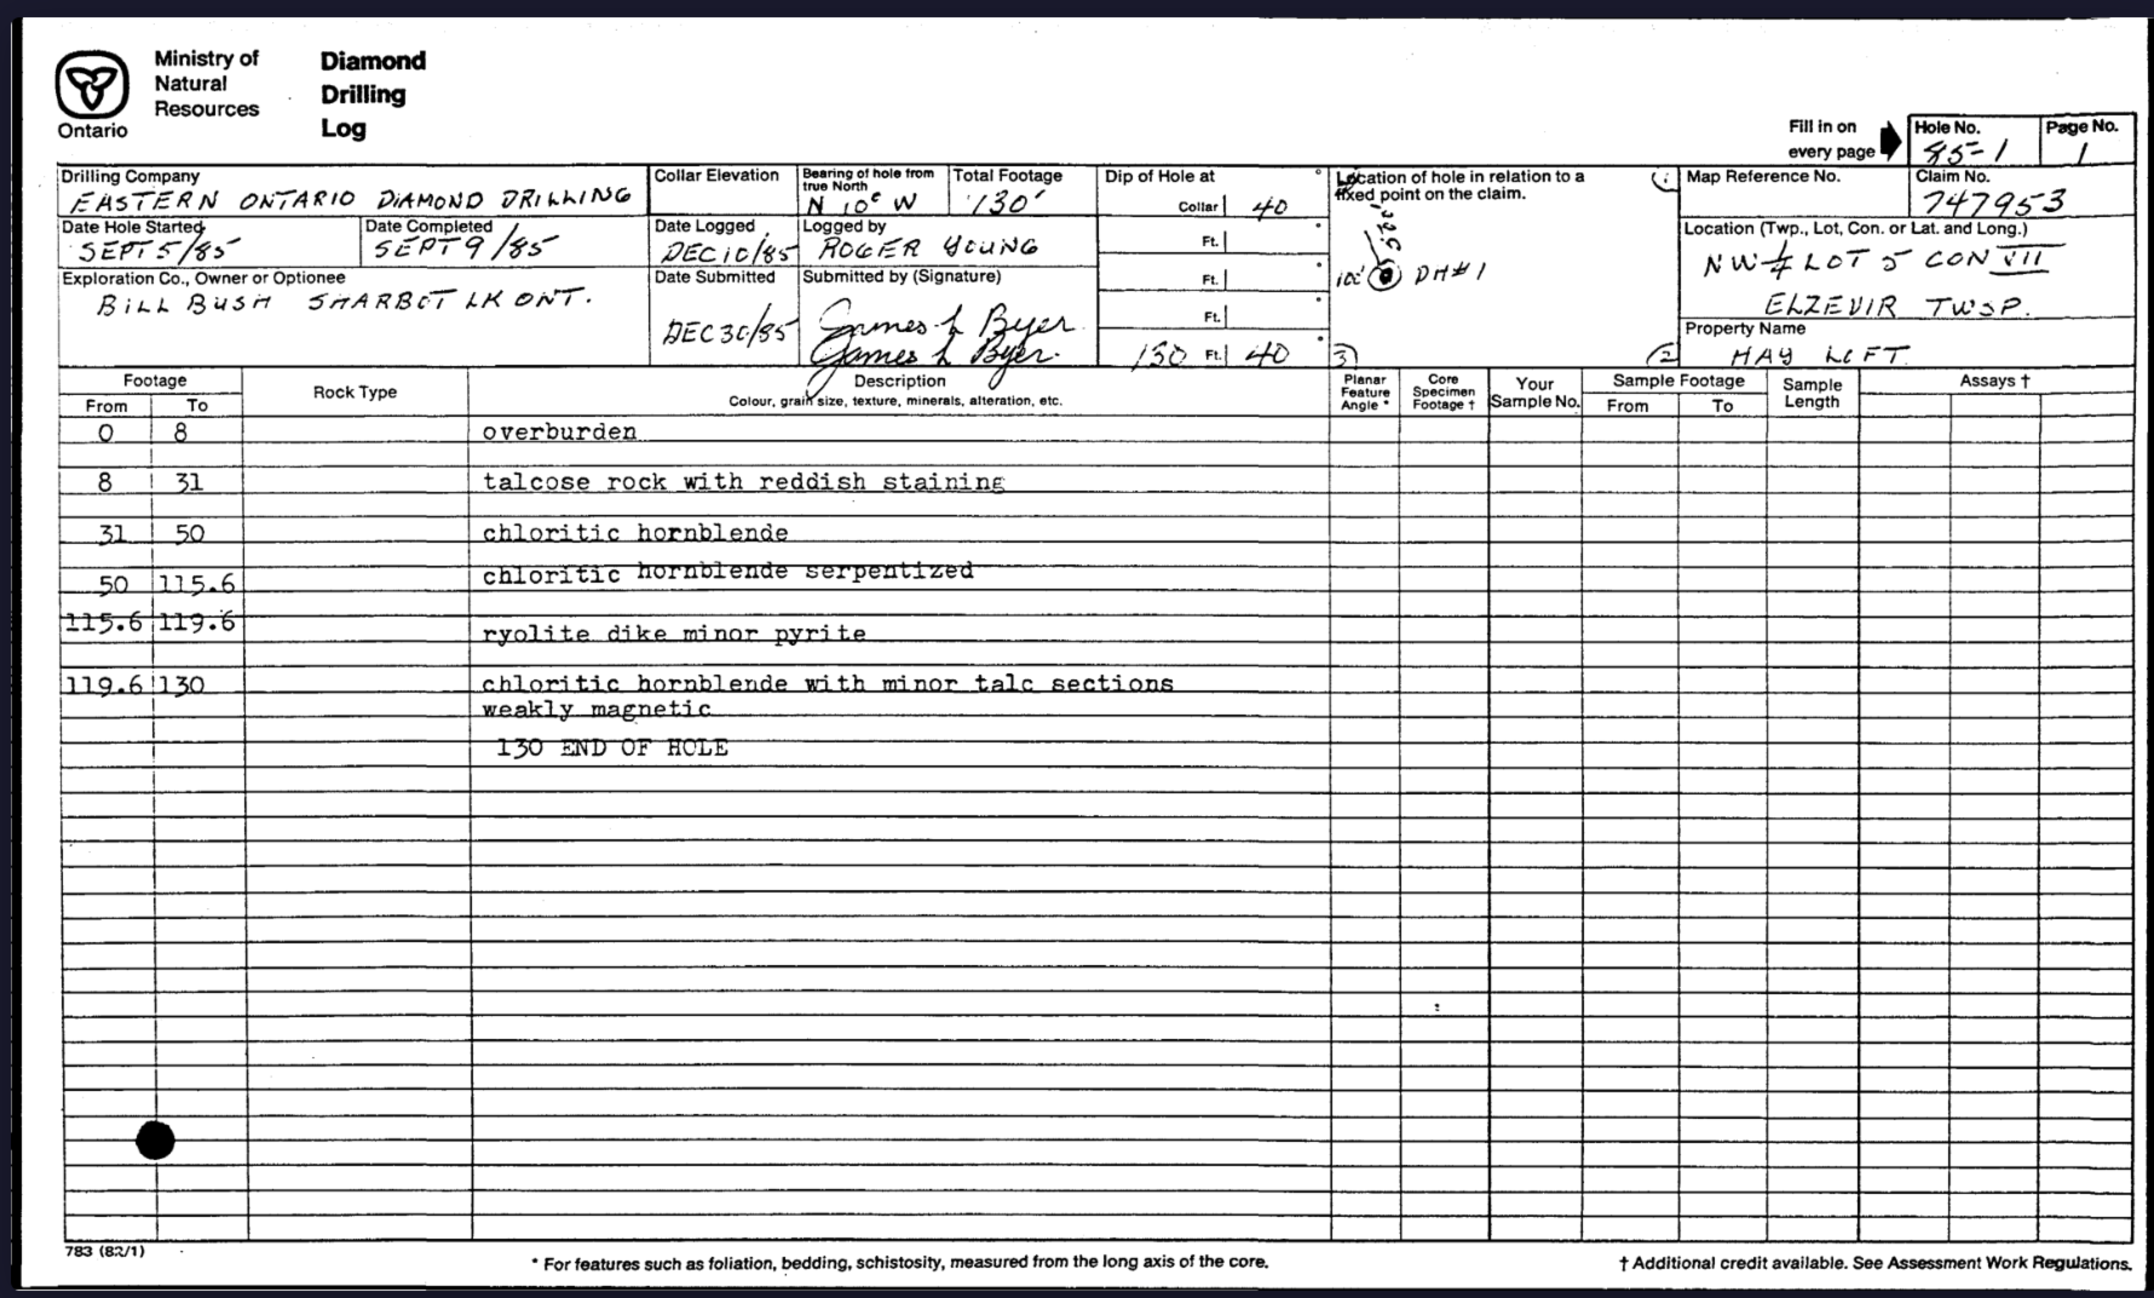 Ministry of
Natural
Resources
Ontario
Diamond
Drilling
Log
Fill in on
every page
Hole No.
85-1
Page No.
1
Drilling Company
EASTERN ONTARIO DIAMOND DRILLING
Collar Elevation
Bearing of hole from
true North
N 10° W
Total Footage
130'
Dip of Hole at
Collar 40
Ft.
Ft.
Ft.
130 Ft. 40
Location of hole in relation to a
fixed point on the claim.
100' DH#1
Map Reference No.
Claim No.
747953
Date Hole Started
SEPT 5/85
Date Completed
SEPT 9/85
Date Logged
DEC 10/85
Logged by
ROGER YOUNG
Location (Twp., Lot, Con. or Lat. and Long.)
NW ¼ LOT 5 CON VII
ELZEVIR TWSP.
Exploration Co., Owner or Optionee
BILL BUSH SHARBOT LK ONT.
Date Submitted
DEC 30/85
Submitted by (Signature)
James L Byer
James L Byer.
Property Name
HAY LOFT
Footage
From To
Rock Type
Description
Colour, grain size, texture, minerals, alteration, etc.
Planar
Feature
Angle *
Core
Specimen
Footage †
Your
Sample No.
Sample Footage
From To
Sample
Length
Assays †
0 8 overburden
8 31 talcose rock with reddish staining
31 50 chloritic hornblende
50 115.6 chloritic hornblende serpentized
115.6 119.6 ryolite dike minor pyrite
119.6 130 chloritic hornblende with minor talc sections
weakly magnetic
130 END OF HOLE
783 (82/1)
* For features such as foliation, bedding, schistosity, measured from the long axis of the core.
† Additional credit available. See Assessment Work Regulations.